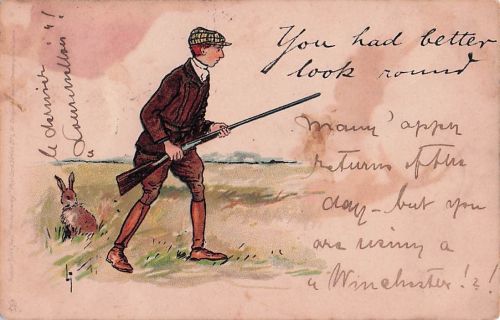 You had better
look round
Many 'appy
returns of the
day – but you
are using a
Winchester!?!
le dernier